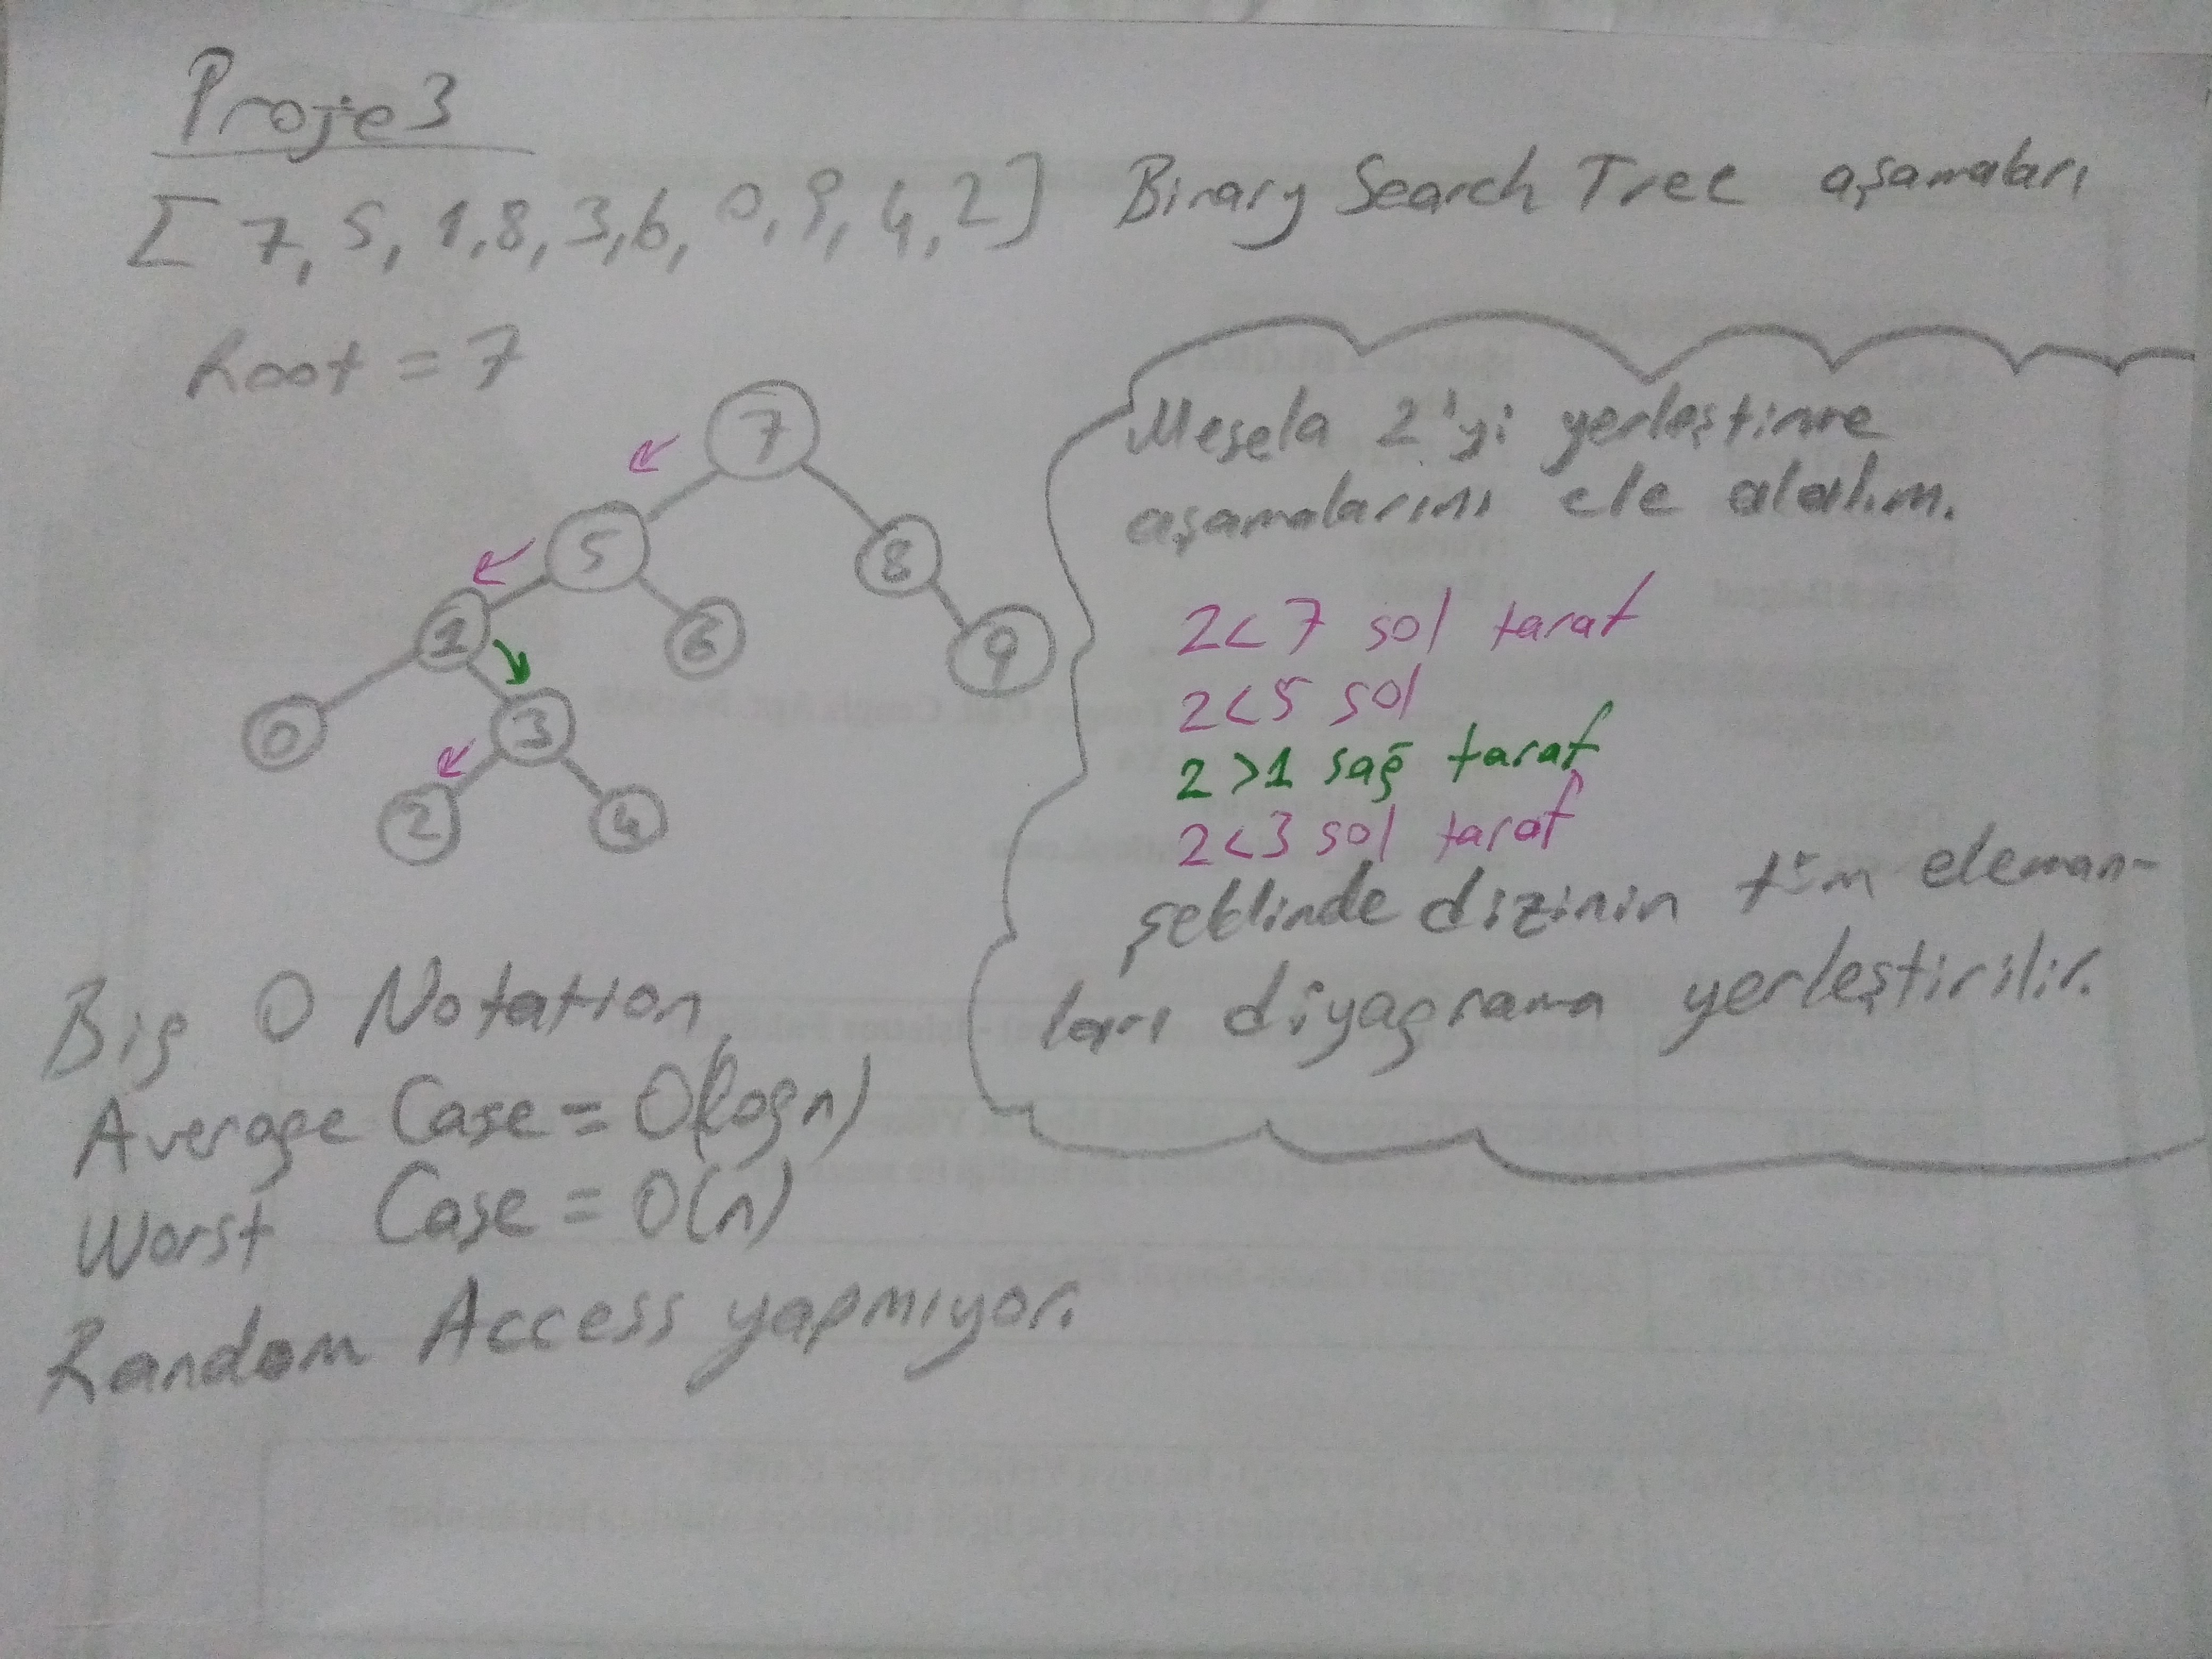 Proje 3
[7, 5, 1, 8, 3, 6, 0, 9, 4, 2] Binary Search Tree aşamaları
Root = 7
7
5
8
1
6
9
0
3
2
4
Mesela 2'yi yerleştirme
aşamalarını ele alalım.
2<7 sol taraf
2<5 sol
2>1 sağ taraf
2<3 sol taraf
şeklinde dizinin tüm eleman-
ları diyagrama yerleştirilir.
Big O Notation,
Average Case = O(logn)
Worst Case = O(n)
Random Access yapmıyor.